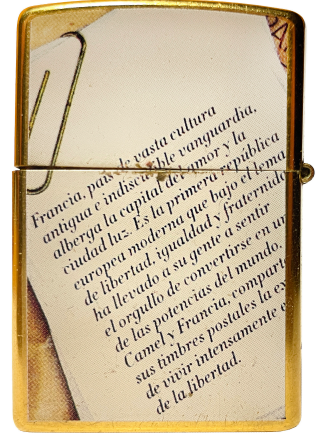 Francia, país de vasta cultura
antigua e indiscutible vanguardia,
alberga la capital del amor y la
ciudad luz. Es la primera república
europea moderna que bajo el lema
de libertad, igualdad y fraternid
ha llevado a su gente a sentir
el orgullo de convertirse en un
de las potencias del mundo.
Camel y Francia, compart
sus timbres postales la ex
de vivir intensamente e
de la libertad.